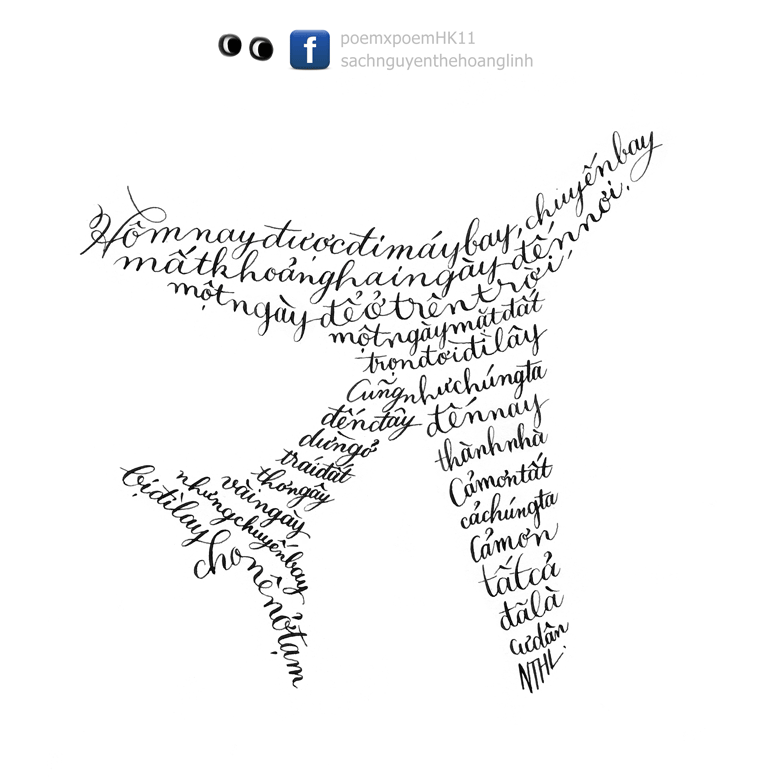 poemxpoemHK11
sachnguyenthehoanglinh
Hôm nay được đi máy bay, chuyến bay
mất khoảng hai ngày đến nơi.
một ngày để ở trên trời,
một ngày mặt đất
trọn đời đi lây
Cũng như chúng ta
đến đây đến nay
dừng ở
trái đất
thơ ngây
vài ngày
những chuyến bay
bị đì lay
cho nên ở tạm
thành nhà
Cảm ơn tất
cả chúng ta
Cảm ơn
tất cả
đã là
cư dân
NTHL.